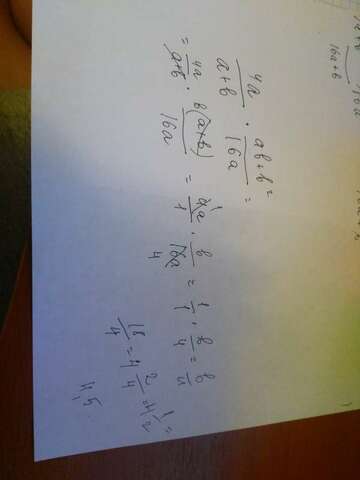 16a+b
4a/a+b · ab+b²/16a =
= 4a/a+b · b(a+b)/16a = 4a/1 · b/16a = 1/1 · b/4 = b/4
18/4 = 4 2/4 = 4 1/2 =
4,5